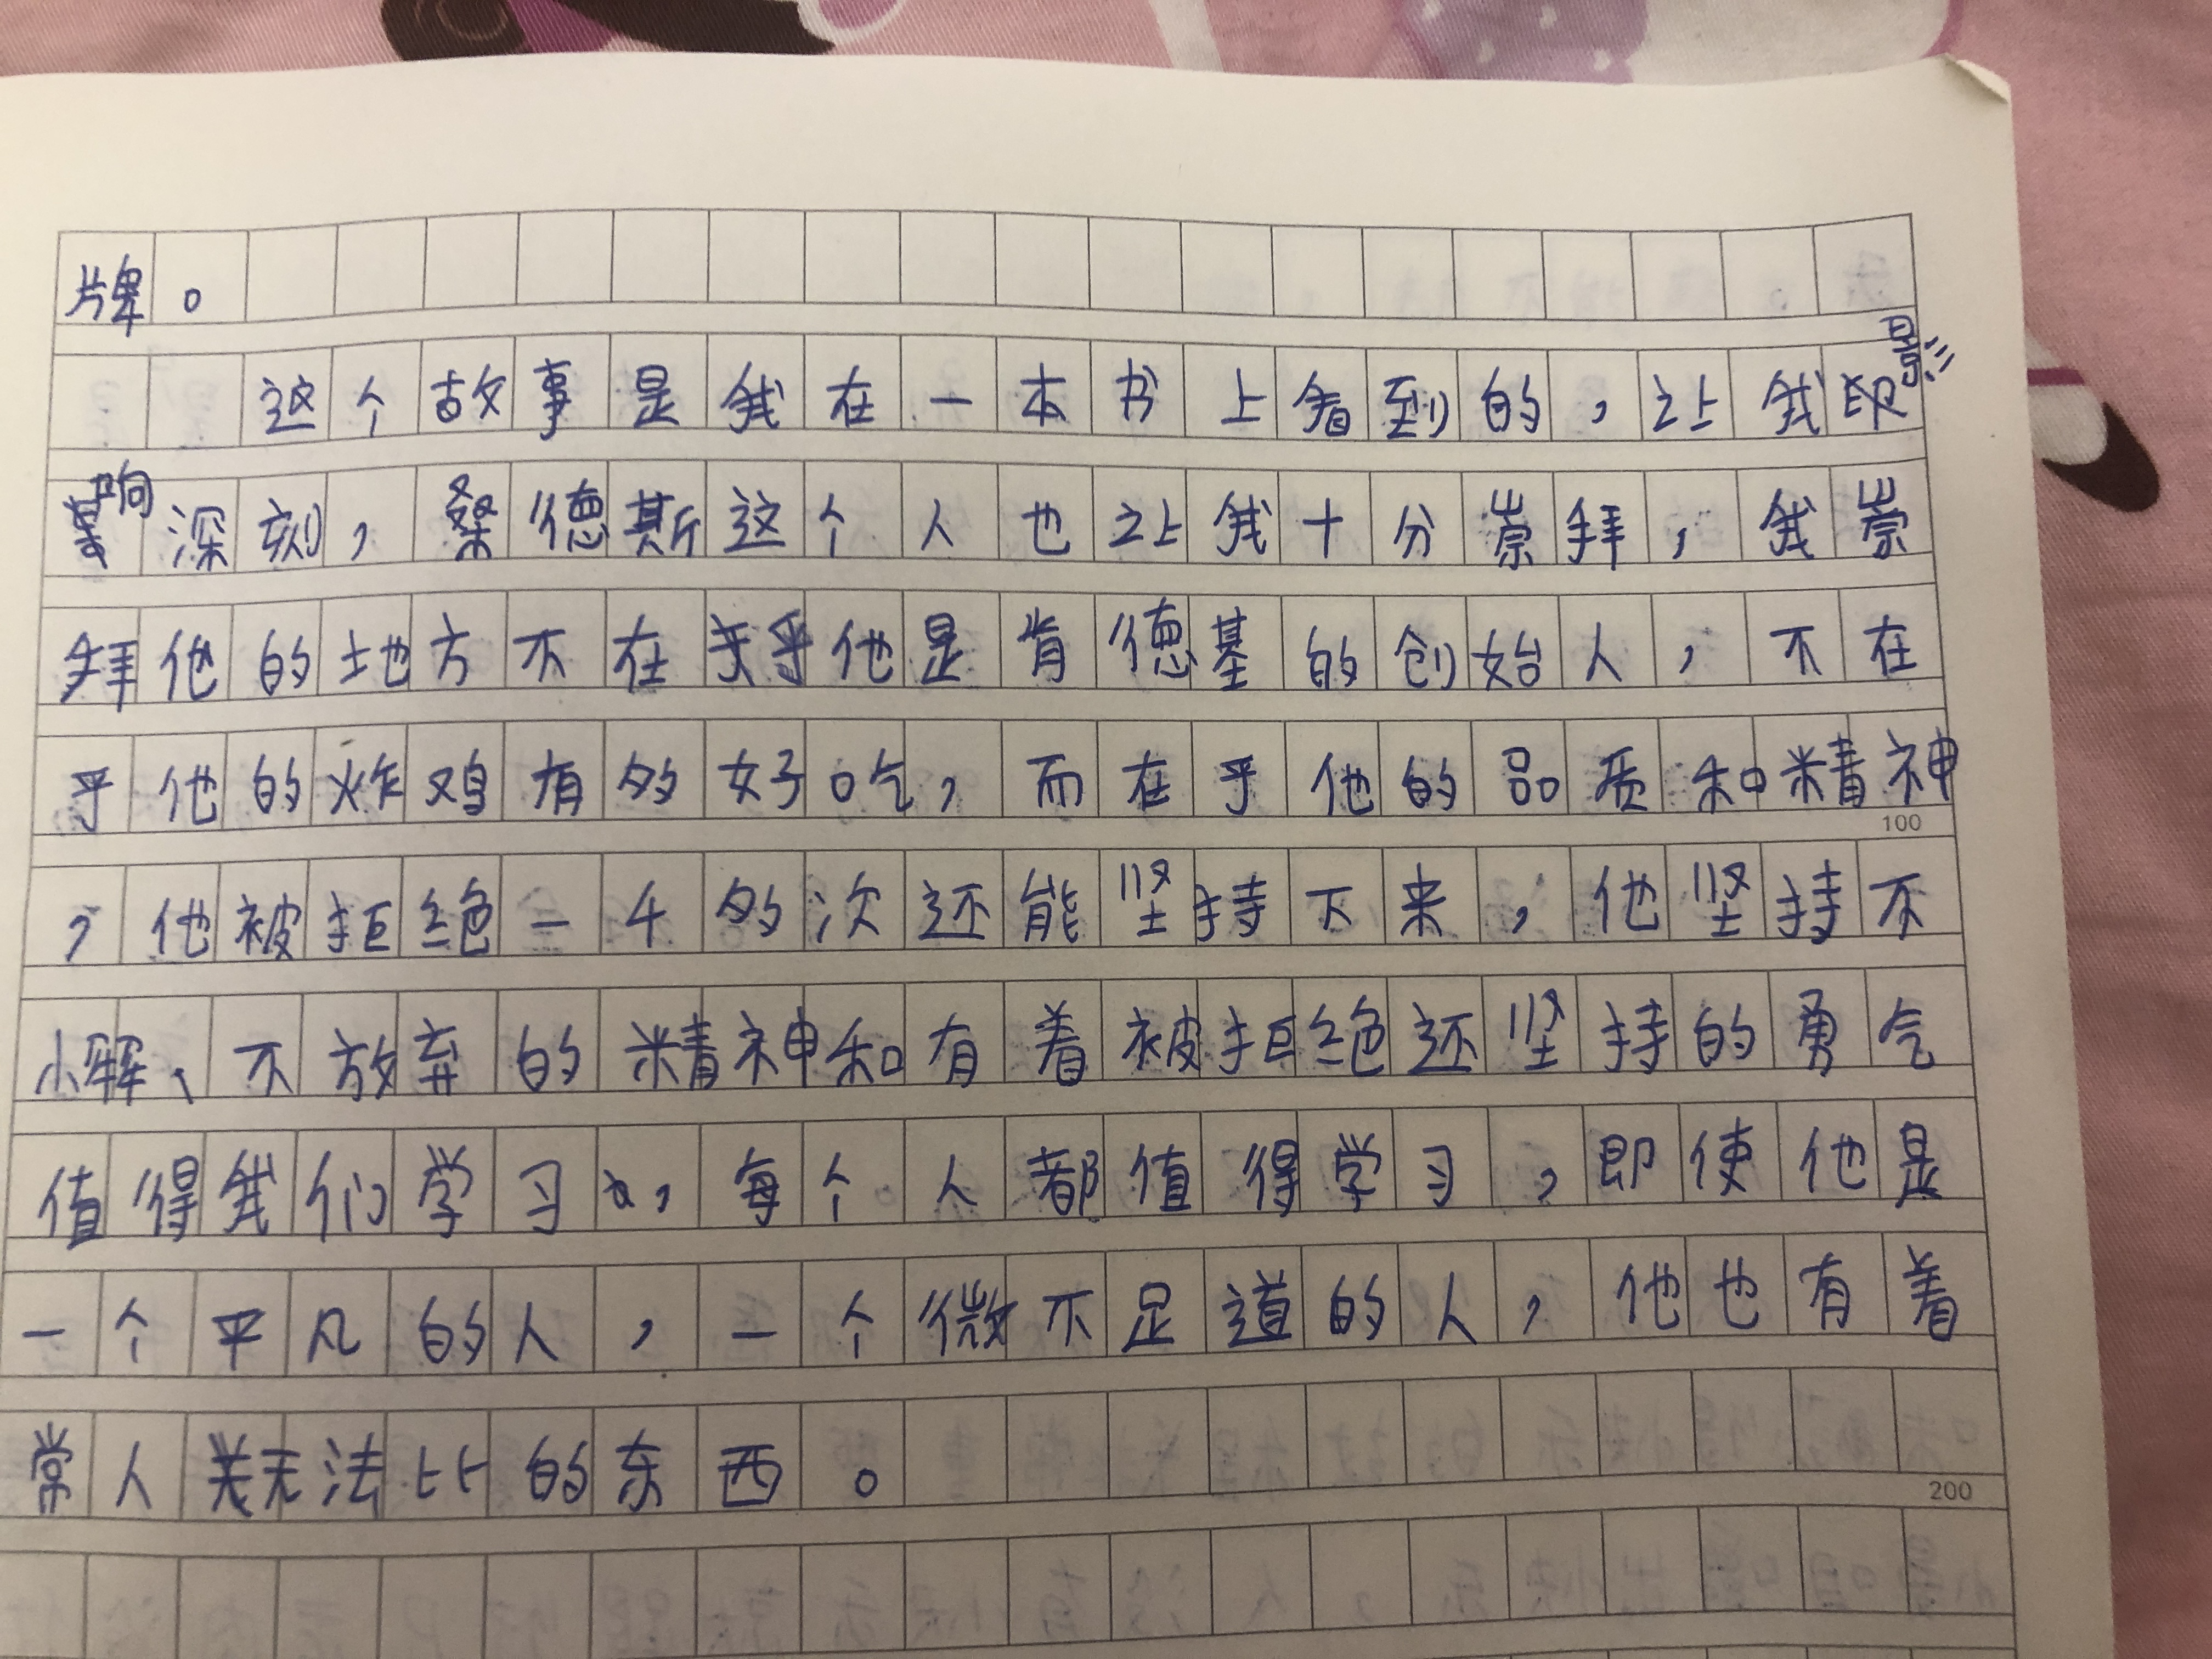 牌。
这个故事是我在一本书上看到的,让我印影
响深刻,桑德斯这个人也让我十分崇拜,我崇
拜他的地方不在乎他是肯德基的创始人,不在
乎他的炸鸡有多好吃,而在乎他的品质和精神
100
,他被拒绝一千多次还能坚持下来,他坚持不
懈、不放弃的精神和有着被拒绝还坚持的勇气
值得我们学习,每个人都值得学习,即使他是
一个平凡的人,一个微不足道的人,他也有着
常人无法比的东西。
200